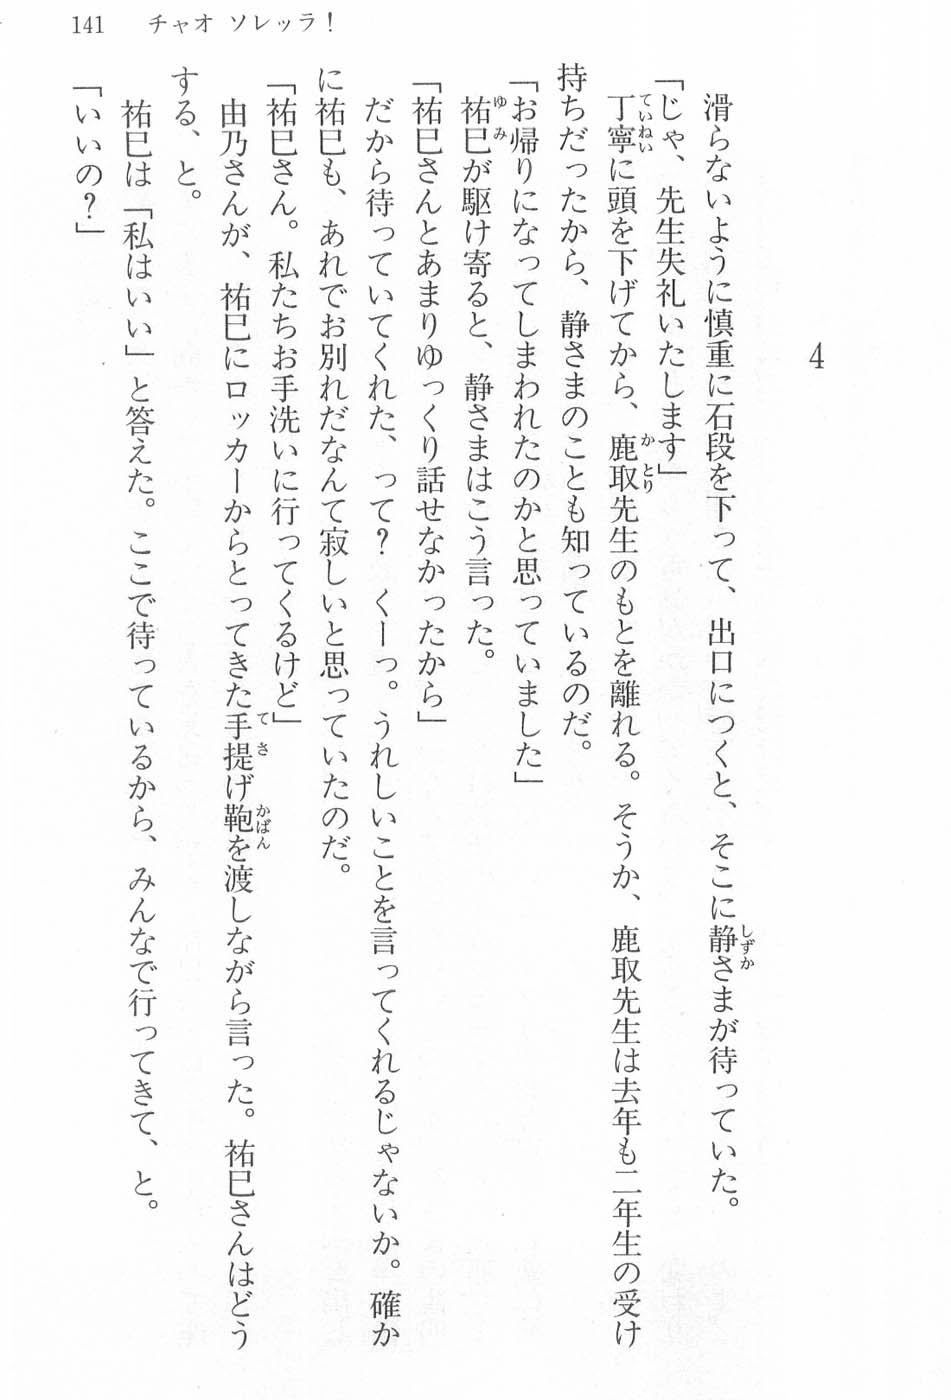 141 チャオ ソレッラ！
4
滑らないように慎重に石段を下って、出口につくと、そこに静さまが待っていた。
しずか
「じゃ、先生失礼いたします」
丁寧に頭を下げてから、鹿取先生のもとを離れる。そうか、鹿取先生は去年も二年生の受け
ていねい
かとり
持ちだったから、静さまのことも知っているのだ。
「お帰りになってしまわれたのかと思っていました」
祐巳が駆け寄ると、静さまはこう言った。
ゆみ
「祐巳さんとあまりゆっくり話せなかったから」
だから待っていてくれた、って？ くーっ。うれしいことを言ってくれるじゃないか。確か
に祐巳も、あれでお別れだなんて寂しいと思っていたのだ。
「祐巳さん。私たちお手洗いに行ってくるけど」
由乃さんが、祐巳にロッカーからとってきた手提げ鞄を渡しながら言った。祐巳さんはどう
てさ
かばん
する、と。
祐巳は「私はいい」と答えた。ここで待っているから、みんなで行ってきて、と。
「いいの？」